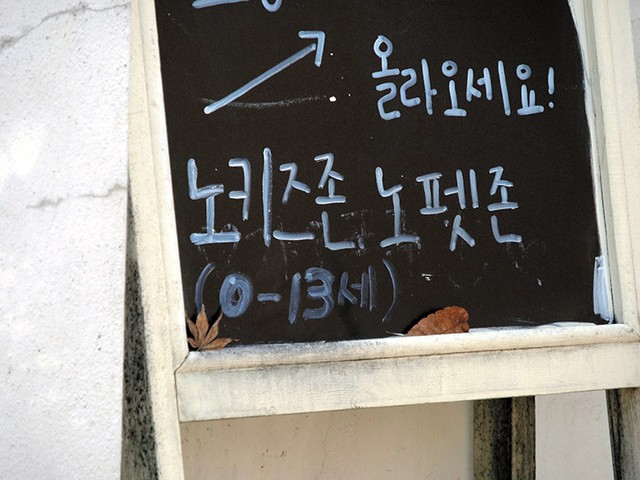 올라오세요!
노키즈존, 노펫존
(0-13세)